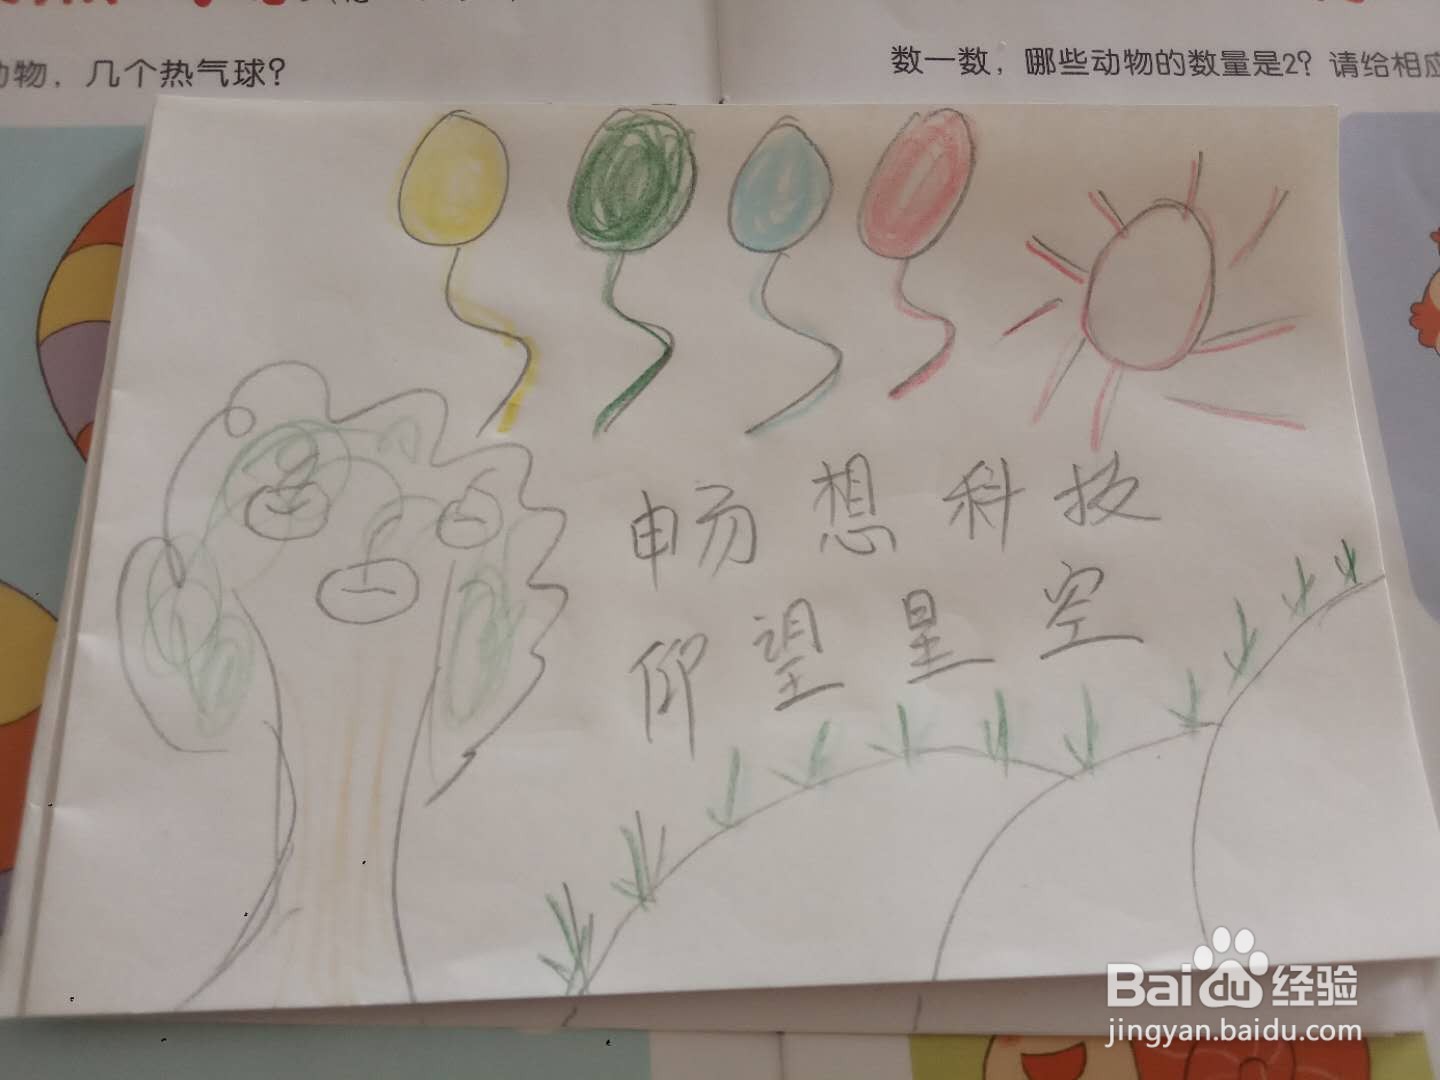 动物，几个热气球？
数一数，哪些动物的数量是2？请给相应
畅想科技
仰望星空
Baidu经验
jingyan.baidu.com